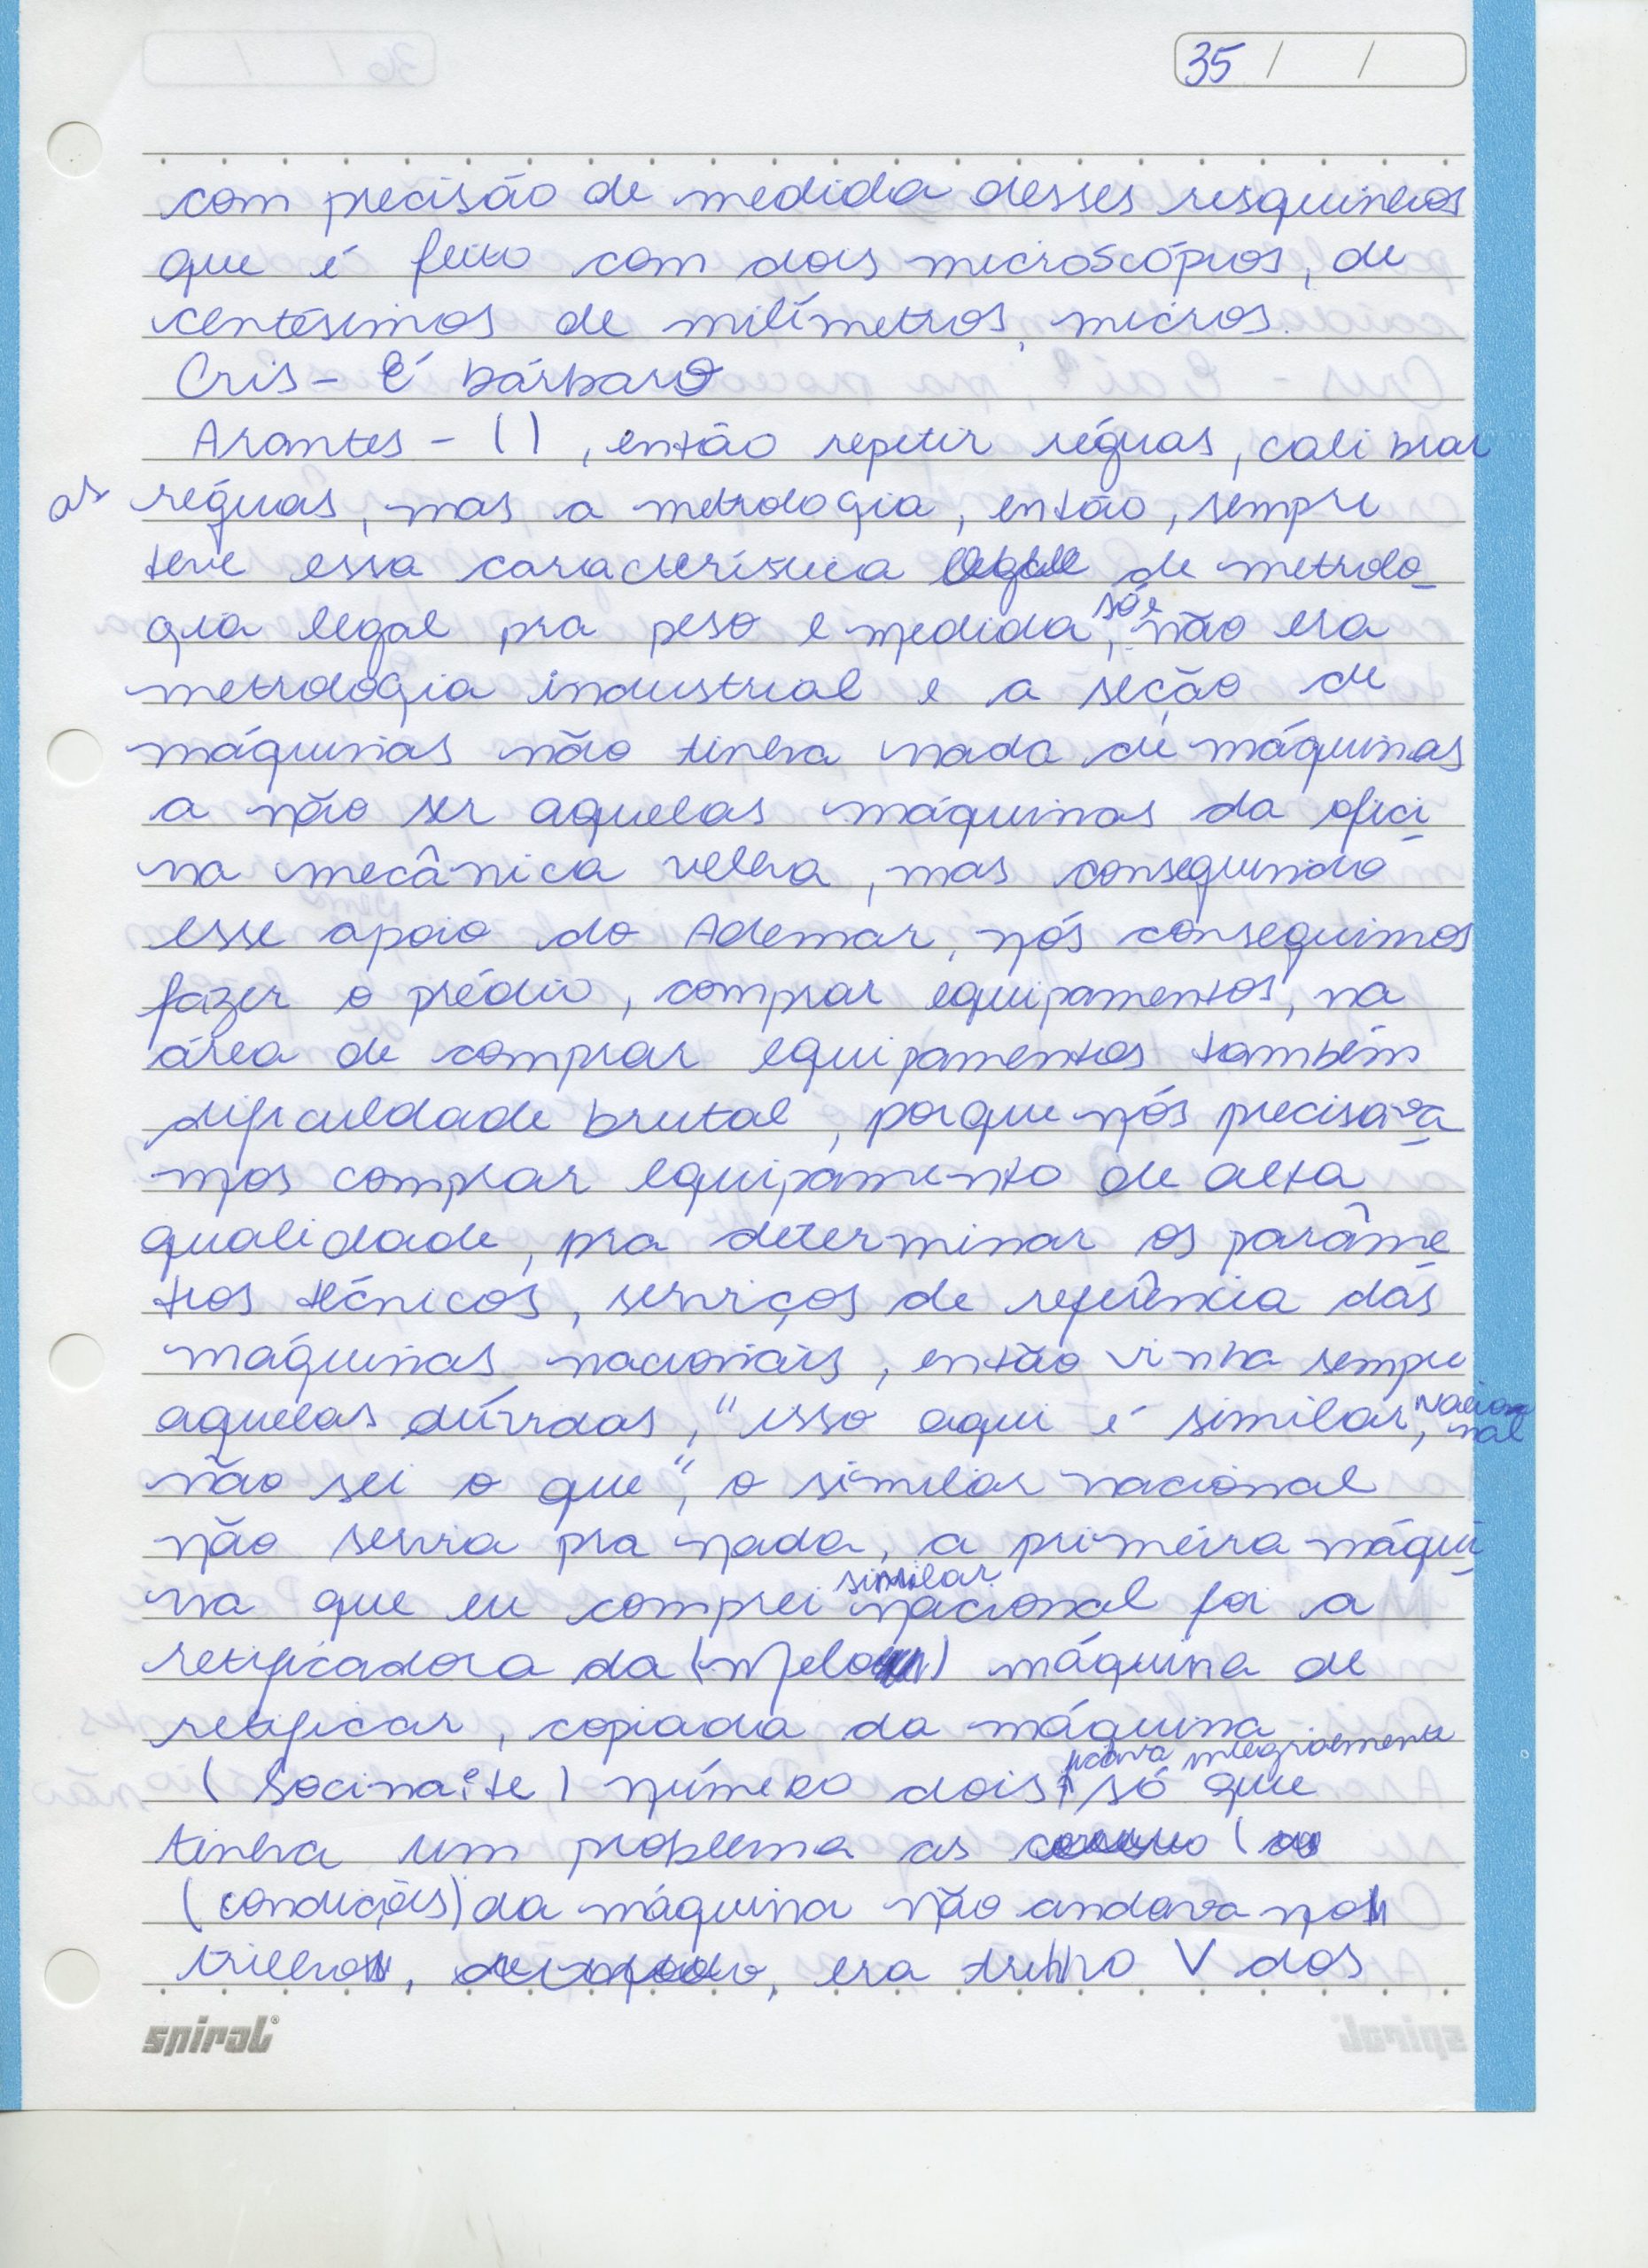 35 / /
com precisão de medida desses resquinhos
que é feito com dois micróscópios, de
centésimos de milímetros, micros.
Cris - É bárbaro
Arantes - ( ) , então repetir réguas, calibrar
as réguas, mas a metrologia, então, sempre
teve essa característica de metrolo
gia legal pra peso e medida, só e não era
metrologia industrial e a seção de
máquinas não tinha nada de máquinas
a não ser aquelas máquinas da ofici
na mecânica velha, mas conseguindo
esse apoio do Ademar, nós conseguimos
fazer o prédio, comprar equipamentos, na
área de comprar equipamentos também
dificuldade brutal, porque nós precisava
mos comprar equipamento de alta
qualidade, pra determinar os parâme
tros técnicos, serviços de referência das
máquinas nacionais, então vinha sempre
aquelas dúvidas, "isso aqui é similar, nacio
nal
não sei o que", o similar nacional
não servia pra nada, a primeira máqui
na que eu comprei similar nacional foi a
retificadora da (Melo) máquina de
retificar, copiada da máquina
integralmente
(Socinaite) número dois, só que
tinha um problema as
(condições) da máquina não andava no
trilho, era trilho V dos
spiral®